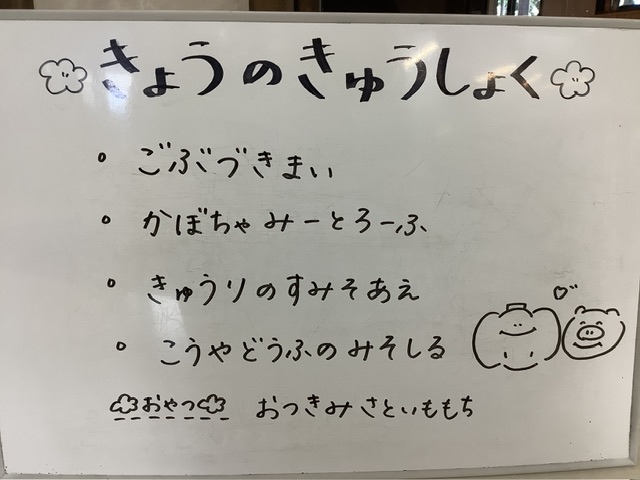 きょうのきゅうしょく
・ごぶづきまい
・かぼちゃみーとろーふ
・きゅうりのすみそあえ
・こうやどうふのみそしる
おやつ おつきみさといももち